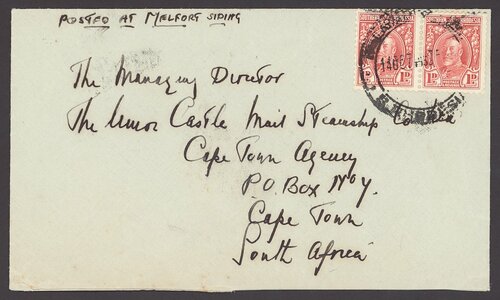 POSTED AT MELFORT SIDING
SOUTHERN RHODESIA
1D 1D
The Managing Director
The Union Castle Mail Steamship Co Ltd
Cape Town Agency
P.O. Box No 7.
Cape Town
South Africa